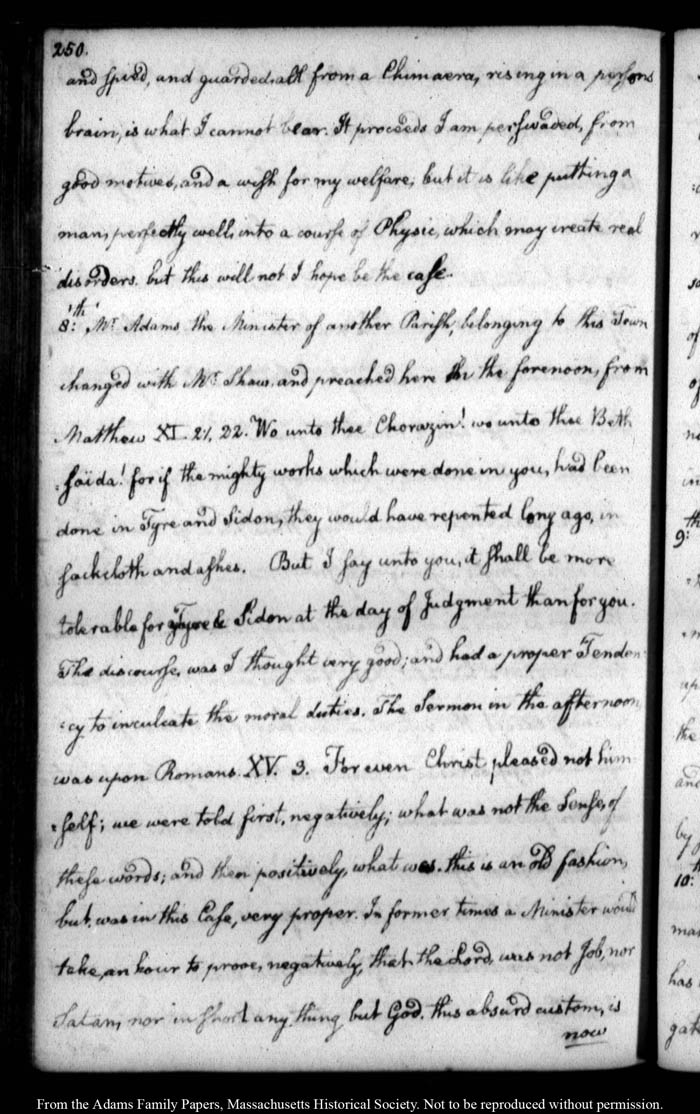 250.
and spied, and guarded, all from a Chimaera, rising in a persons
brain, is what I cannot bear. It proceeds I am perswaded, from
good motives, and a wish for my welfare; but it is like putting a
man, perfectly well, into a course of Physic, which may create real
disorders. but this will not I hope be the case.
8:th Mr. Adams, the Minister of another Parish, belonging to this Town
changed with Mr. Shaw. and preached here in the forenoon, from
Matthew XI. 21. 22. Wo unto thee Chorazin! wo unto thee Beth
=saïda! for if the mighty works which were done in you, had been
done in Tyre and Sidon, they would have repented long ago, in
sackcloth and ashes. But I say unto you, it shall be more
tolerable for Tyre & Sidon at the day of Judgment than for you.
The discourse, was I thought very good; and had a proper Tenden-
=cy to inculcate the moral duties. The Sermon in the afternoon,
was upon Romans. XV. 3. For even Christ pleased not him-
=self; we were told first, negatively; what was not the Sense, of
these words; and then positively, what was. this is an old fashion,
but, was in this Case, very proper. In former times a Minister would
take, an hour to prove, negatively, that the Lord, was not Job, nor
Satan, nor in short any thing but God. this absurd custom, is
now
9:th
the
10:th
has
From the Adams Family Papers, Massachusetts Historical Society. Not to be reproduced without permission.